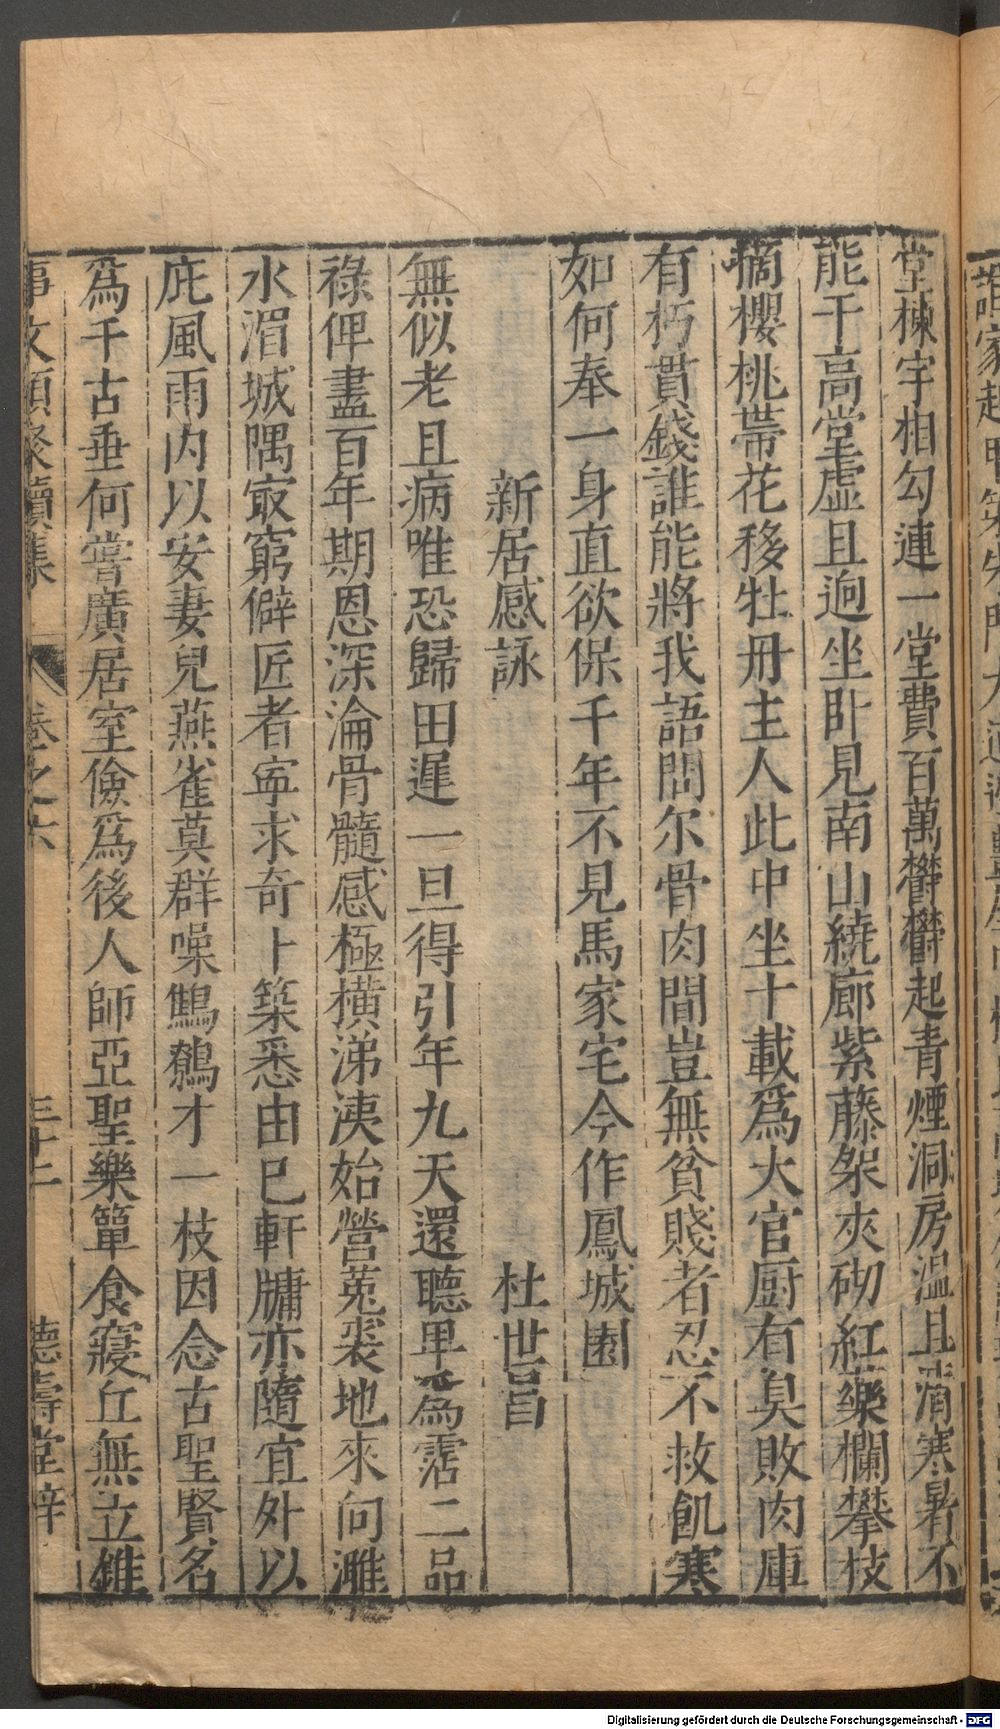 堂棟宇相勾連一堂費百萬欝欝起青煙洞房温且清寒暑不
能干高堂虛且逈坐卧見南山繞廊紫藤架夾砌紅藥欄攀枝
摘櫻桃帶花移牡丹主人此中坐十載爲大官厨有臭敗肉庫
有朽貫錢誰能將我語問尔骨肉間豈無貧賤者忍不救飢寒
如何奉一身直欲保千年不見馬家宅今作鳳城園
新居感詠 杜世昌
無似老且病唯恐歸田遲一旦得引年九天還聽卑爲霑二品
祿俾盡百年期恩深淪骨髓感極橫涕洟始營菟裘地來向濉
水湄城隅寂窮僻匠者寧求奇卜築悉由已軒牗亦隨宜外以
庇風雨内以安妻兒燕雀莫群噪鷦鷯才一枝因念古聖賢名
爲千古垂何嘗廣居室儉爲後人師亞聖樂簞食寢丘無立錐
事文類聚續集 卷之六 三十二 德壽堂梓
Digitalisierung gefördert durch die Deutsche Forschungsgemeinschaft - DFG